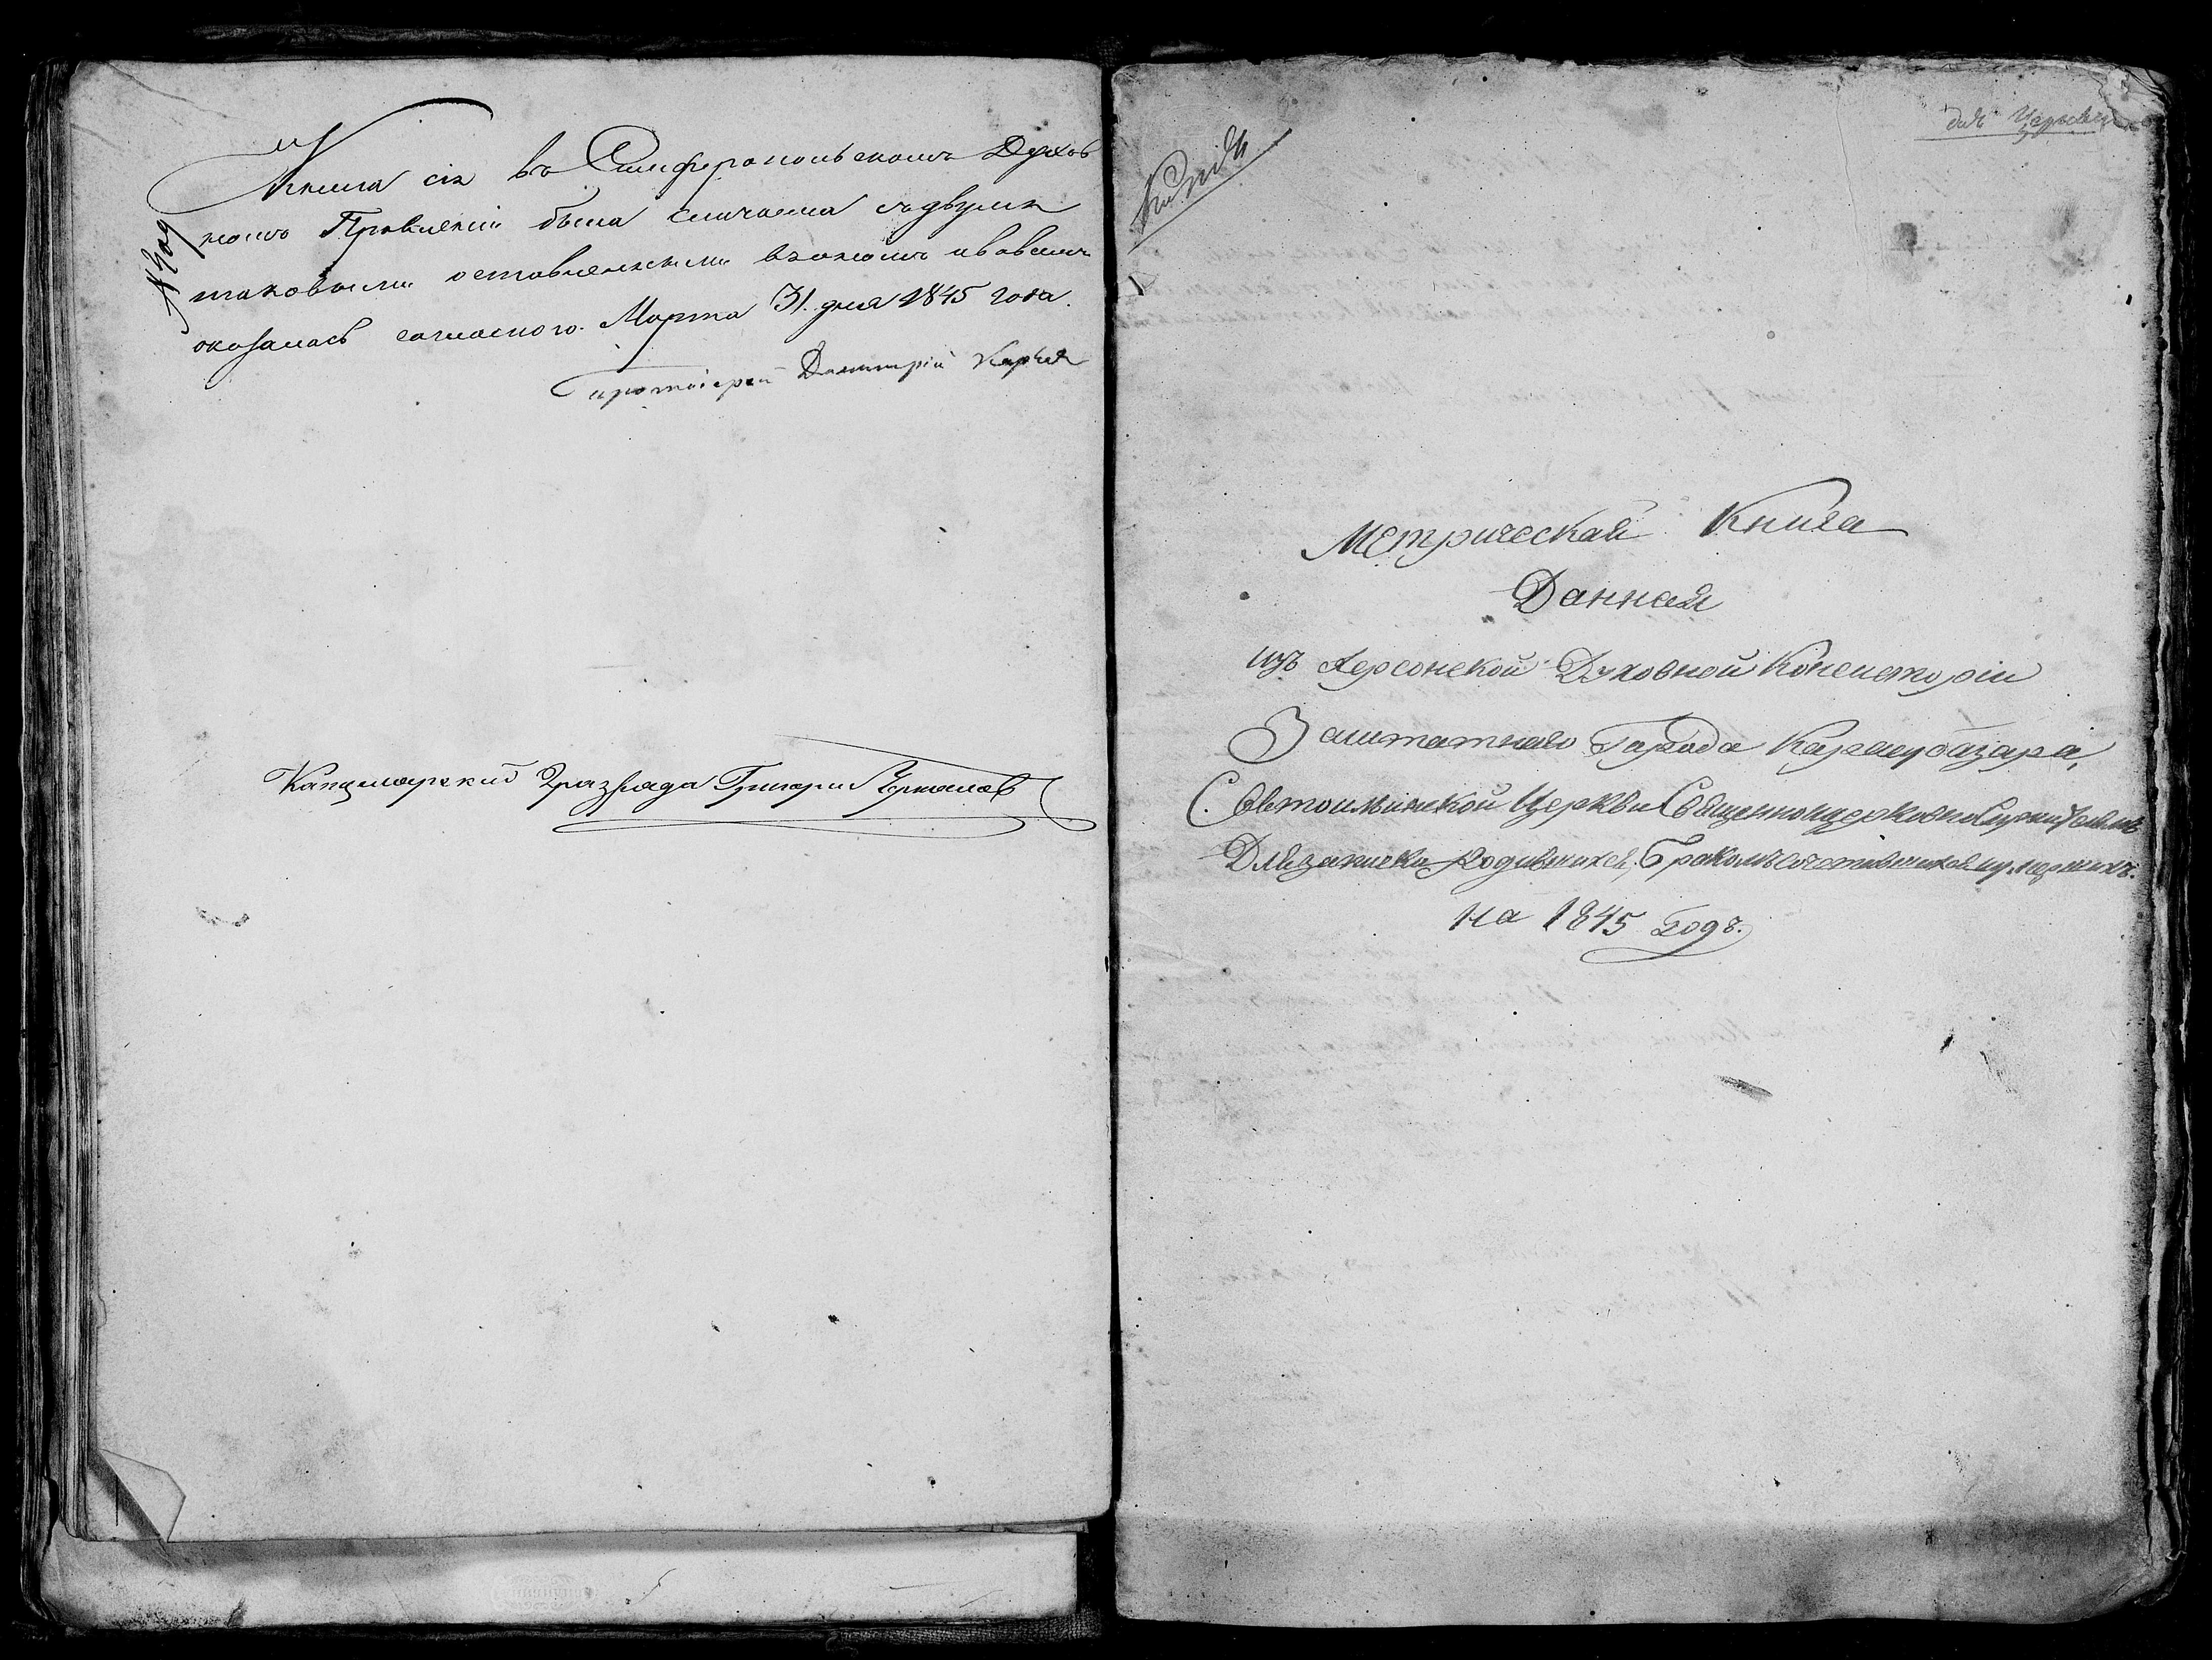 Книга сія въ Симферопольскомъ Духов
номъ Правленіи была сличаема съ двумя
таковыми оставленными
оказалась согласною. Марта 31. дня 1845 года.
Протоіерей Димитрій
Канцелярскій 2 разряда Григорій
для Церкви
Метрическая Книга
Данная
изъ Херсонской Духовной Консисторіи
Заштатнаго Города Карасубазара,
Светоильинской Церкви Священноцерковнослужителямъ
Для записки Родившихся, Бракомъ сочетавшихся и умершихъ.
на 1845 Годъ.